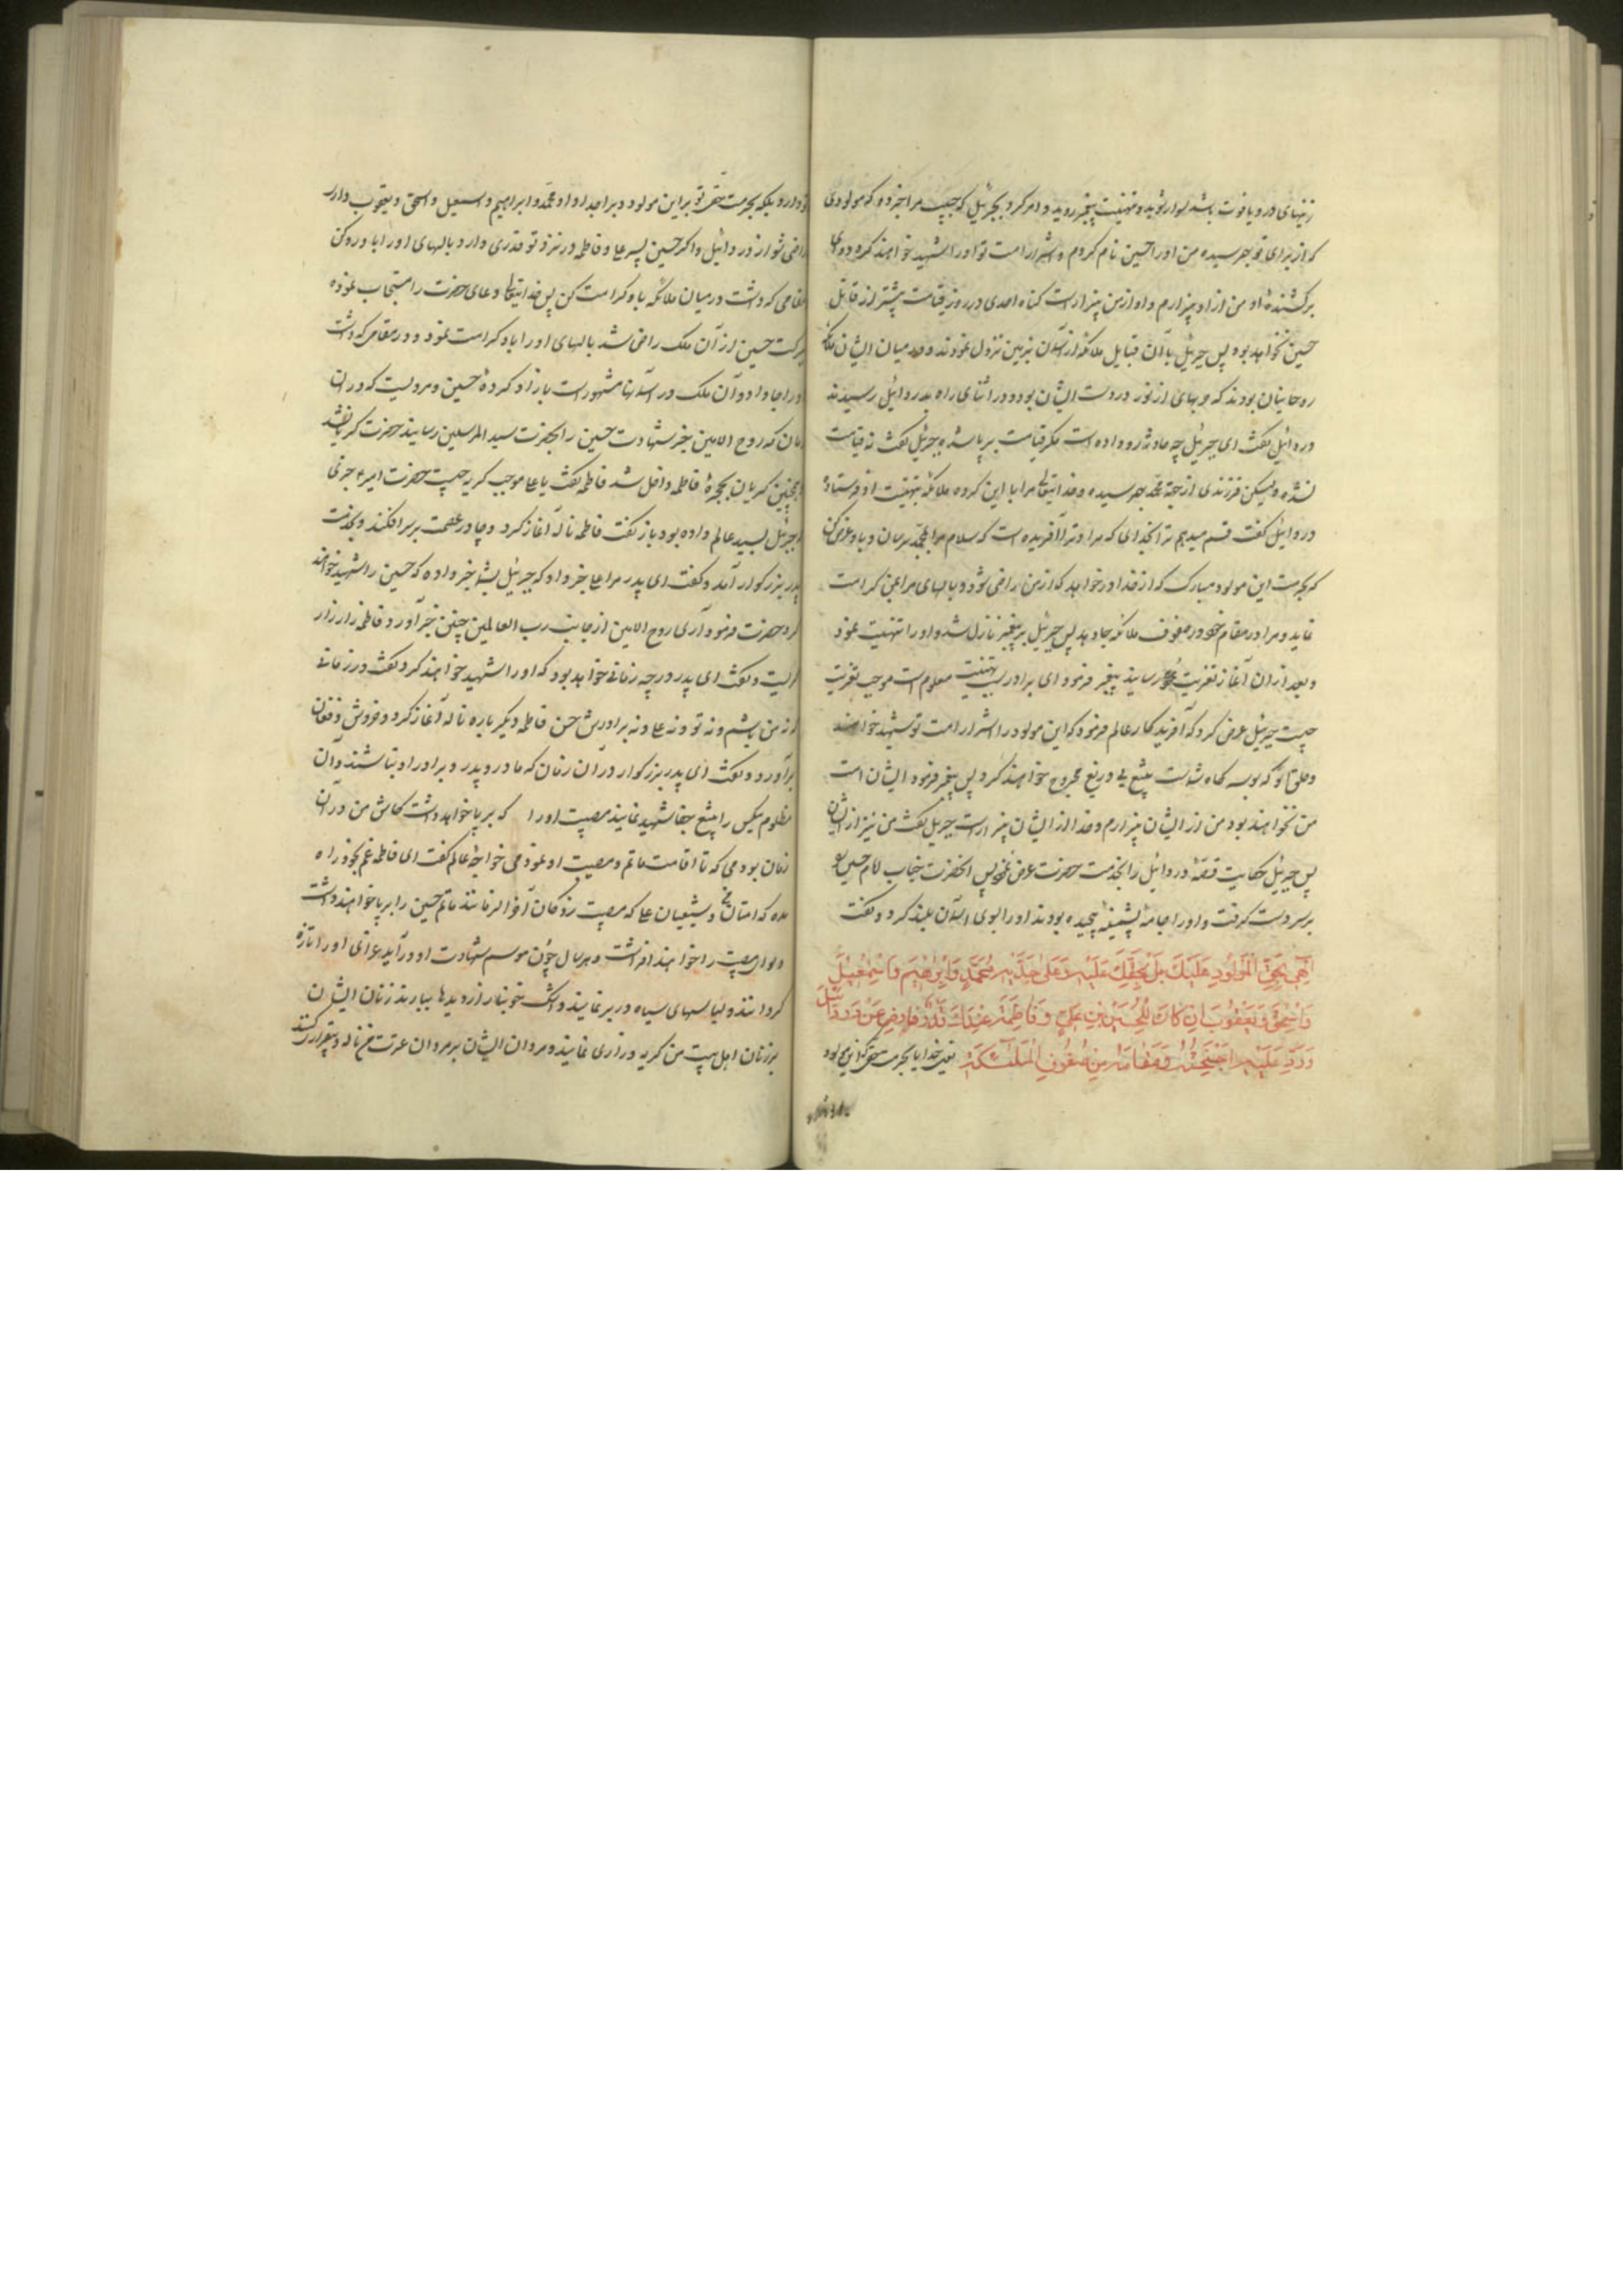 زینهای در و یاقوت باشد سوار شوید و بتهنیت پیغمبر روید و امر کرد بجبرئیل که حبیب مرا خبر ده که مولودی
که از برای تو بهم رسیده من او را حسین نام کردم و اشرار امت تو او را شهید خواهند کرد و وای
بر کشندۀ او من از او بیزارم و او از من بیزارست گناه احدی در روز قیامت بیشتر از قاتل
حسین نخواهد بود پس جبرئیل با آن قبایل ملائکه از آسمان بزمین نزول نمودند و در میان ایشان ملائکه
روحانیان بودند که حربهای از نور در دست ایشان بود و در اثنای راه بدردائیل رسیدند
دردائیل گفت ای جبرئیل چه حادثه رو داده است مگر قیامت برپا شده جبرئیل گفت نه قیامت
نشده ولیکن فرزندی از جهة محمد بهم رسیده و خدایتعالی مرا با این گروه ملائکه بتهنیت او فرستاده
دردائیل گفت قسم میدهم ترا بخدای که مرا و ترا آفریده است که سلام مرا بمحمد برسان و باو عرض کن
که بحرمت این مولود مبارک که از خدا درخواهد که از من راضی شود و بالهای مرا بمن کرامت
نماید و مرا در مقام خود در صفوف ملائکه جا دهد پس جبرئیل بر پیغمبر نازل شد و او را تهنیت نمود
و بعد از آن آغاز تعزیت رسانید پیغمبر فرمود ای برادر سبب تهنیت معلوم است موجب تعزیت
چیست جبرئیل عرض کرد که آفریدگار عالم فرمود که این مولود را اشرار امت تو شهید خواهند
و حلق او که بوسه گاه شماست بتیغ بی دریغ مجروح خواهند کرد پس پیغمبر فرمود ایشان امت
من نخواهند بود من از ایشان بیزارم و خدا از ایشان بیزار است جبرئیل گفت من نیز از ایشان
پس جبرئیل حکایت قصۀ دردائیل را بخدمت حضرت عرض نمود پس آنحضرت جناب امام حسین را
بر سر دست گرفت و او را جامۀ پشمینه پیچیده بودند او را بسوی آسمان بلند کرد و گفت
اِلٰهی بِحَقِّ الْمَوْلُودِ عَلَیْكَ بَلْ بِحَقِّكَ عَلَیْهِ وَ عَلیٰ جَدِّهِ مُحَمَّدٍ وَ اِبْرٰهیمَ وَ اِسْمٰعیلَ
وَ اِسْحٰقَ وَ یَعْقُوبَ اِنْ کَانَ لِلْحُسَیْنِ بْنِ عَلِیٍّ وَ فَاطِمَةَ عِنْدَكَ قَدْرٌ فَارْضَ عَنْ دَرْدَائیلَ
وَ رُدَّ عَلَیْهِ اَجْنِحَتَهُ وَ مَقَامَهُ مِنْ صُفُوفِ الْمَلٰئِکَةِ یعنی خدایا بحرمت حقی که این مولود
تو دارد بلکه بحرمت حق تو بر این مولود و بر اجداد او محمد و ابراهیم و اسمعیل و اسحق و یعقوب دارد
راضی شو از دردائیل و اگر حسین پسر علی و فاطمه در نزد تو قدری دارد بالهای او را باو رد کن
مقامی که داشت در میان ملائکه باو کرامت کن پس خدایتعالی دعای حضرت را مستجاب نموده
ببرکت حسین از آن ملک راضی شد بالهای او را باو کرامت نمود و در مقامی که داشت
او را جا داد و آن ملک در آسمانها مشهور است بازاد کردۀ حسین و مرویست که در آن
زمان که روح الامین خبر شهادت حسین را بحضرت سید المرسلین رسانید حضرت گریان شد
همچنین گریان بحجرۀ فاطمه داخل شد فاطمه گفت یا علی موجب گریه چیست حضرت امیر خبری
که جبرئیل بسید عالم داده بود باز گفت فاطمه ناله آغاز کرد و چادر عصمت بر سر افکند و بخدمت
پدر بزرگوار آمد و گفت ای پدر مرا علی خبر داد که جبرئیل بشما خبر داده که حسین را شهید خواهند
کرد حضرت فرمود آری روح الامین از جانب رب العالمین چنین خبر آورد فاطمه زار زار
گریست و گفت ای پدر در چه زمانی خواهد بود که او را شهید خواهند کرد گفت در زمانی
که نه من باشم و نه تو و نه علی و نه برادرش حسن فاطمه دیگر باره ناله آغاز کرد و خروش و فغان
برآورد و گفت ای پدر بزرگوار در آن زمان که مادر و پدر و برادر او نباشند و آن
مظلوم بیکس را بتیغ جفا شهید نمایند مصیبت او را که برپا خواهد داشت کاش من در آن
زمان بودمی که تا اقامت ماتم و مصیبت او نمودمی خواجۀ عالم گفت ای فاطمه غم بخود راه
مده که امتان من و شیعیان علی که مصیبت زدگان آخر الزمانند ماتم حسین را برپا خواهند داشت
و لوای مصیبت را خواهند افراشت و هر سال چون موسم شهادت او درآید عزای او را تازه
گردانند و لباسهای سیاه در بر نمایند و اشک خونبار از دیدها ببارند زنان ایشان
بر زنان اهل بیت من گریه و زاری نمایند و مردان ایشان بر مردان عترت من ناله و بیقراری کنند